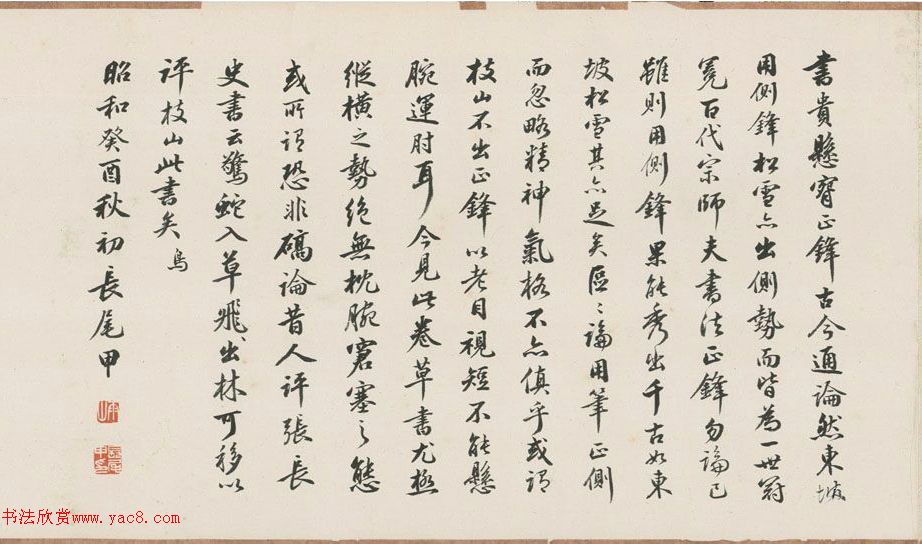 書貴懸實正鋒古今通論然東坡
用側鋒松雪亦出側勢而皆為一世冠
冕百代宗師夫書法正鋒勿論已
雖則用側鋒果能秀出千古如東
坡松雪其亦足矣區〻論用筆正側
而忽略精神氣格不亦傎乎或謂
枝山不出正鋒以老目視短不能懸
腕運肘耳今見此卷草書尤極
縱橫之勢絕無枕腕窘塞之態
或所謂恐非礭論昔人評張長
史書云驚蛇入草飛出林可移以
評枝山此書矣 鳥
昭和癸酉秋初長尾甲
书法欣赏www.yac8.com